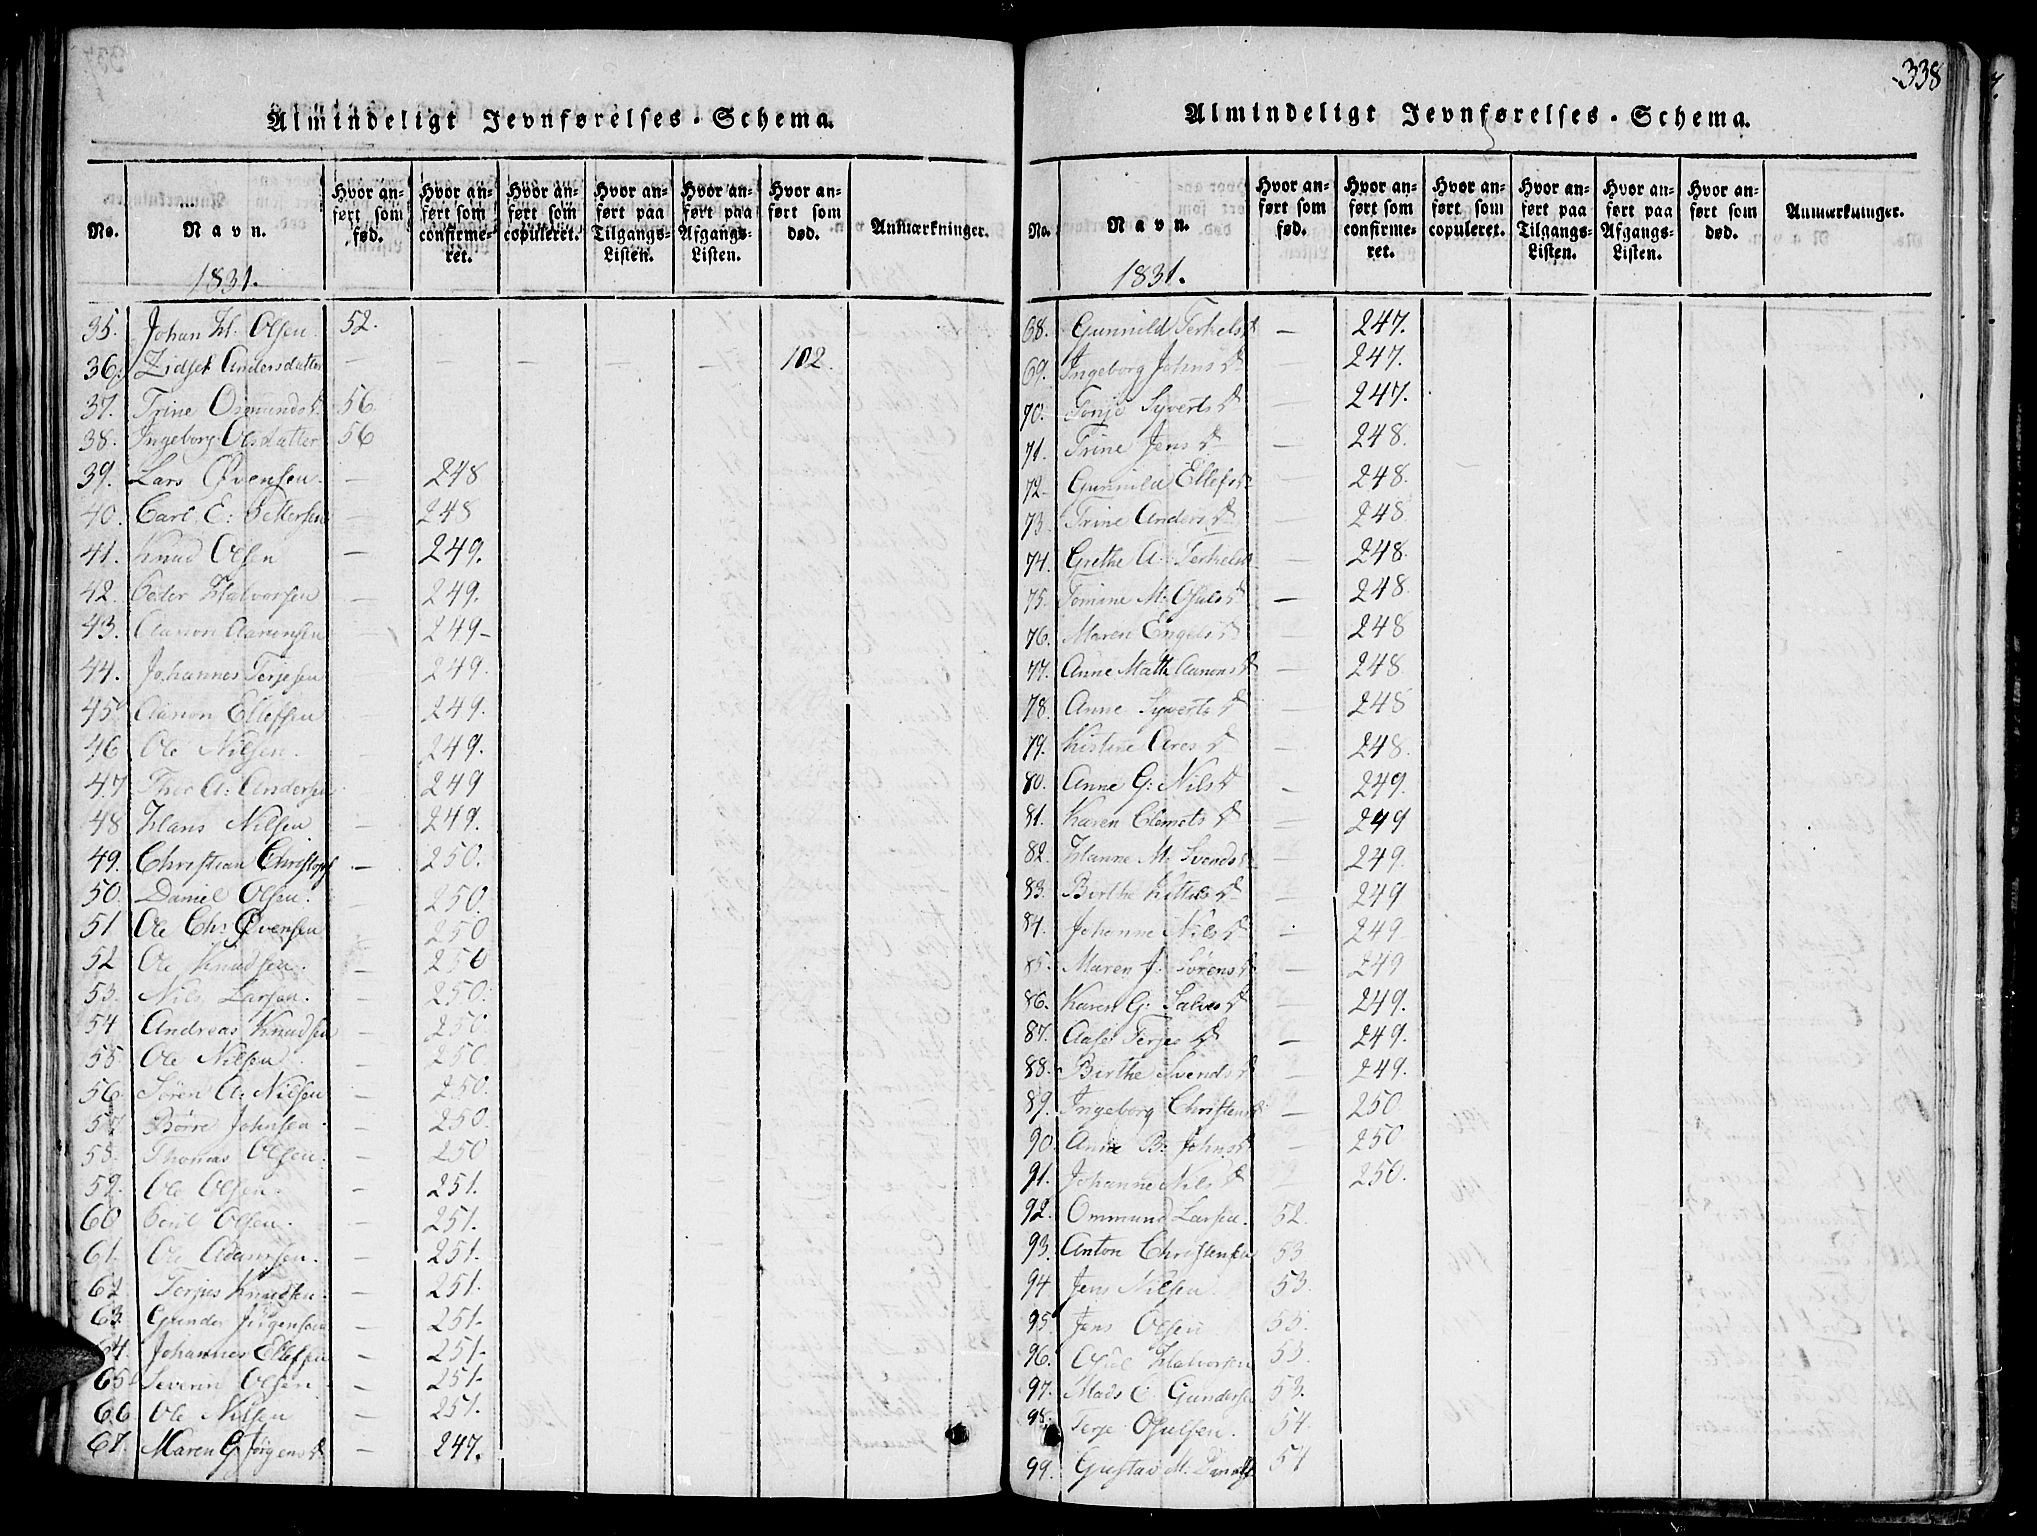 338
Almindeligt Jevnførelses-Schema.
No. Navn. Hvor anført som fød. Hvor anført som confirmeret. Hvor anført som copuleret. Hvor anført paa Tilgangs-Listen. Hvor anført paa Afgangs-Listen. Hvor anført som død. Anmærkninger.
1831.
35. Johan H. Olsen. 52.
36. Zidsel Andersdatter — — — — — — 102.
37. Trine Osmundsd. 56
38. Ingeborg Olsdatter 56
39. Lars Øvensen. — 248
40. Carl E: Pettersen — 248
41. Knud Olsen — 249.
42. Peder Halvorsen — 249.
43. Aanon Aanonsen — 249-
44. Johannes Terjesen — 249.
45 Aanon Ellefsen — 249.
46 Ole Nilsen. — 249.
47 Thor A: Andersen 249
48 Hans Nilsen — 249.
49. Christian Christoph — 250.
50. Daniel Olsen. — 250.
51 Ole Chs Øvensen — 250
52 Ole Knudsen. — 250
53. Nils Larsen. — 250.
54 Andreas Knudsen — 250
55 Ole Nilsen — 250
56 Søren A. Nilsen — 250.
57 Børre Johnsen — 250.
58. Thomas Olsen. — 250
59. Ole Olsen. — 251.
60 Olsen. — 251.
61. Ole Adamsen. — 251.
62 Terjus Knudsen. — 251.
63. Gunder Jörgensen — 251.
64. Johannes Ellefsen — 251-
65 Severin Olsen — 251.
66 Ole Nilsen — 251.
67. Maren G. Jørgensd. — 247.
Almindeligt Jevnførelses-Schema.
No. Navn. Hvor anført som fød. Hvor anført som confirmeret. Hvor anført som copuleret. Hvor anført paa Tilgangs-Listen. Hvor anført paa Afgangs-Listen. Hvor anført som død. Anmærkninger.
1831.
68. Gunnild Terkelsd — 247.
69. Ingeborg Johnsd — 247.
70. Tonje Syvertsd — 247.
71. Trine Jensd — 248.
72. Gunnild Ellefsd — 248.
73. Trine Andersd — 248
74. Grethe A: Terkelsd 248.
75. Tomine M: Osulsd — 248.
76. Maren Engelsd — 248
77. Anne Math Aanonsd — 248
78. Anne Syvertsd — 248
79. Kistine Aresd — 248.
80. Anne G: Nilsd — 249.
81. Karen Clemetsd — 249
82. Hanne M: Svendsd — 249.
83. Birthe Kittelsd — 249
84. Johanne Nilsd — 249
85. Maren J. Sørensd — 249
86. Karen G: Salvesd — 249.
87. Aase Terjesd — 249.
88. Birthe Svendsd — 249.
89. Ingeborg Christensd — 250
90. Anne B: Johnsd — 250
91. Johanne Nilsd — 250.
92. Ommund Larsen. 52.
93. Anton Christensen 53
94 Jens Nilsen. 53.
95. Jens Olsen 53.
96. Osul Halvorsen 53.
97. Mads C. Gundersen 53.
98. Terje Osulsen. 54.
99. Gustav M. 54